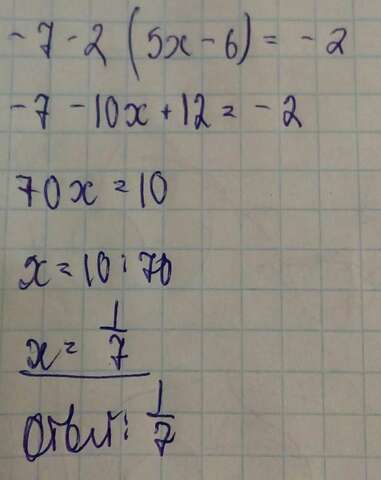 -7-2(5x-6)=-2
-7-10x+12=-2
70x=10
x=10:70
x=1/7
Ответ: 1/7